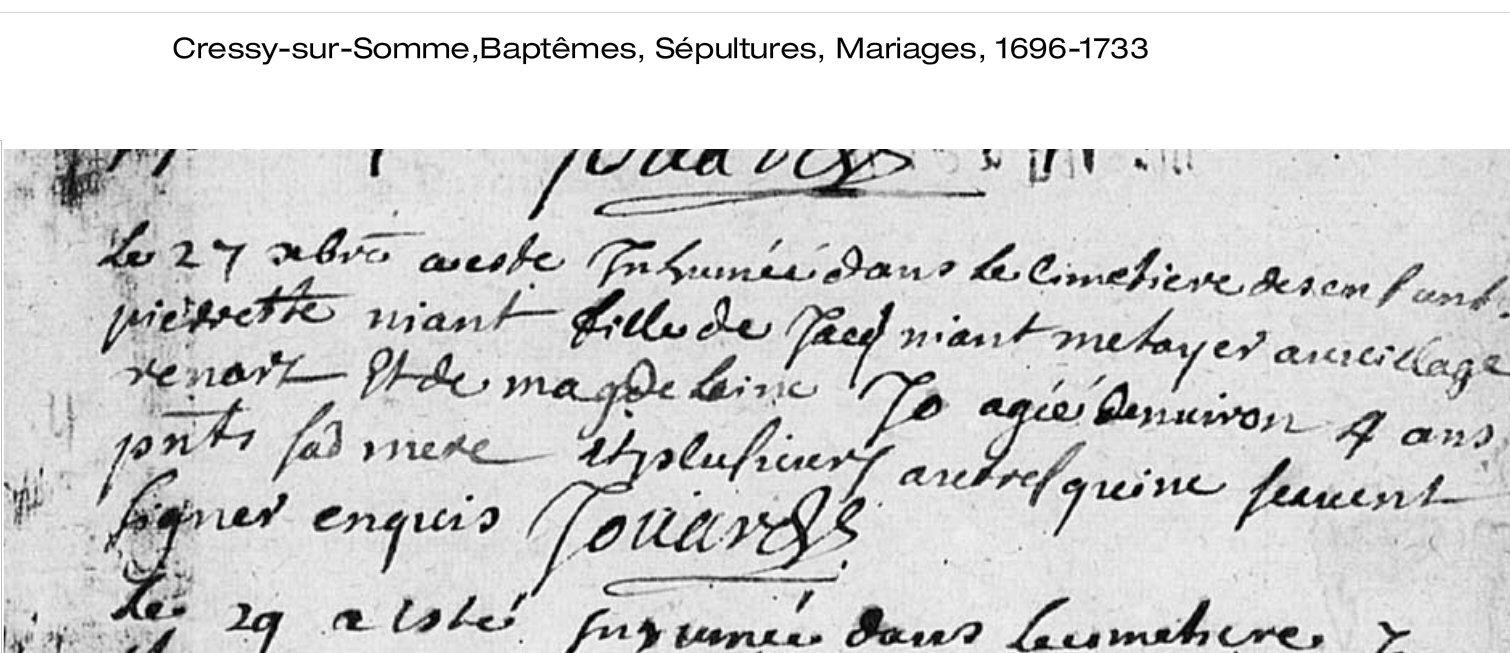 Cressy-sur-Somme,Baptêmes, Sépultures, Mariages, 1696-1733
Jouard
Le 27 xbre a este Inhumée dans le Cimetiere des enfants
pierrette niant fille de Jacq niant metayer au village
renart Et de magdeleine Jo agée denuiron 4 ans
pnts sad mere et plusieurs autres qui ne scauent
signer enquis Jouard
Le 29 a esté Inhumée dans le cimetiere